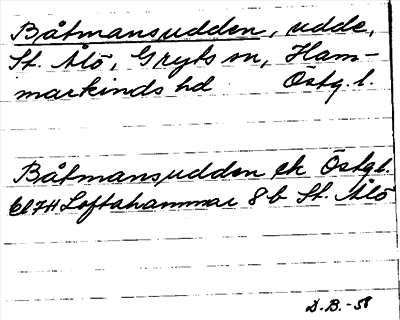 Båtmansudden, udde,
St. Ålö, Gryts sn, Ham-
markinds hd Östg. l.
Båtmansudden ek Östg. l.
Loftahammar 8 b St. Ålö
D. B. -58